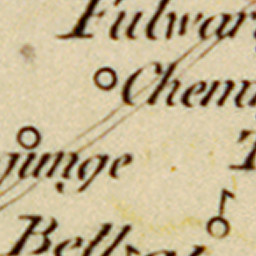 Fulwar
Chem
junge
T
Bells